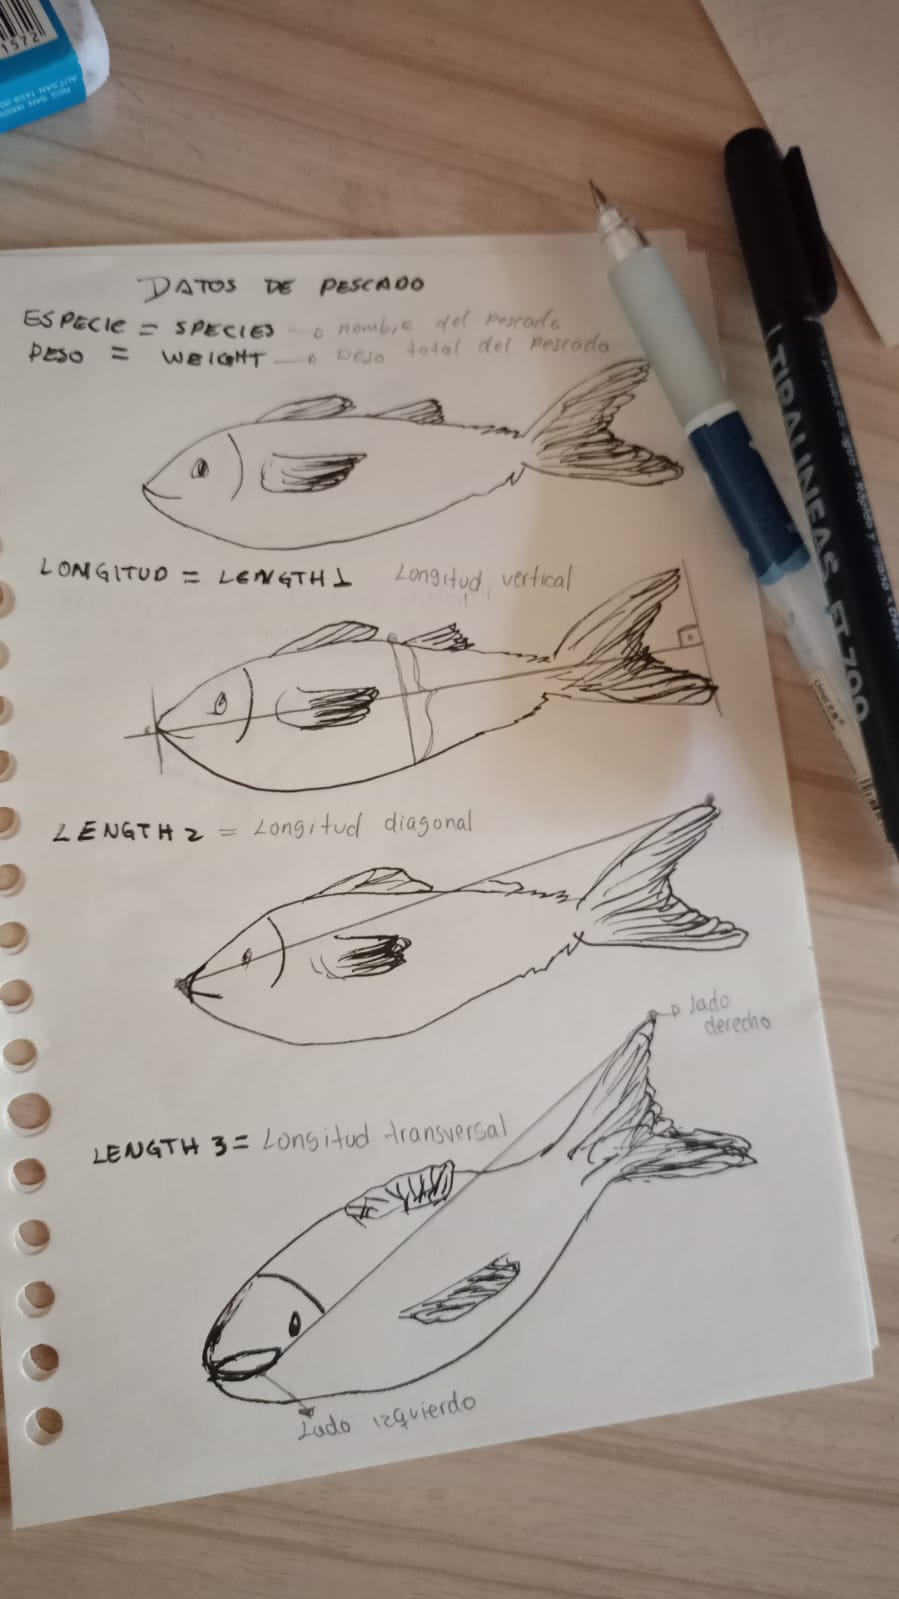 1572
DATOS DE PESCADO
ESPECIE = SPECIES nombre del Pescado
PESO = WEIGHT Peso total del Pescado
LONGITUD = LENGTH 1 Longitud vertical
LENGTH 2 = Longitud diagonal
lado
derecho
LENGTH 3 = Longitud transversal
Lado izquierdo
TIRALINEAS ET-700